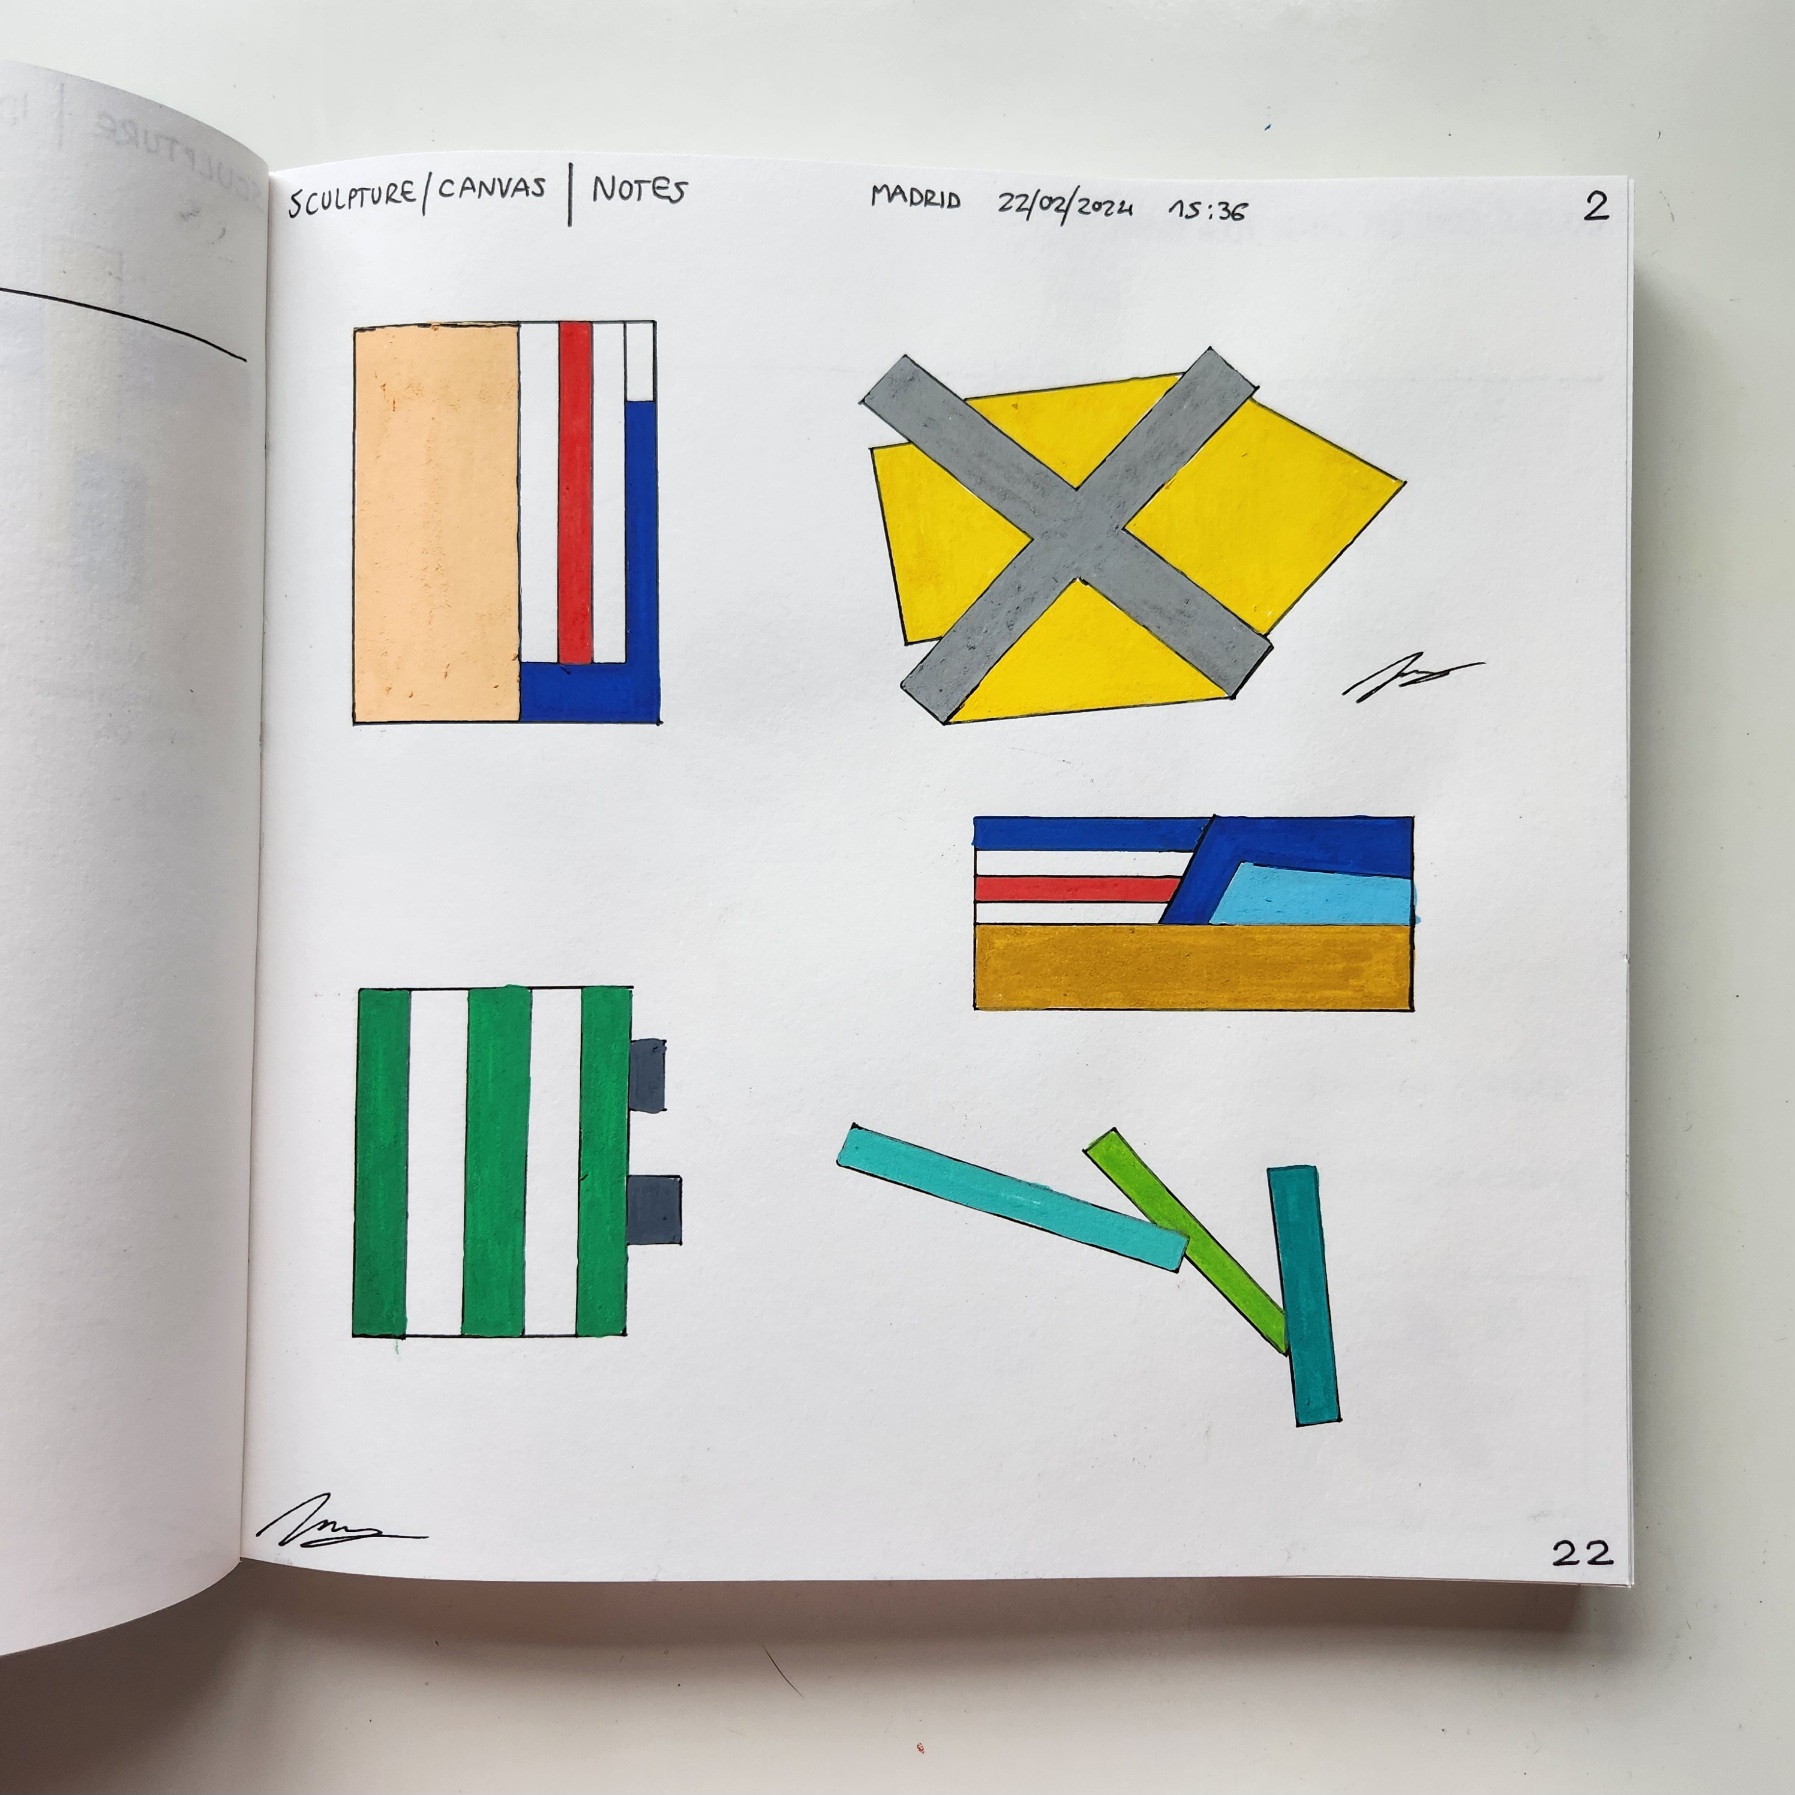 SCULPTURE/CANVAS | NOTES MADRID 22/02/2024 15:36 2
22